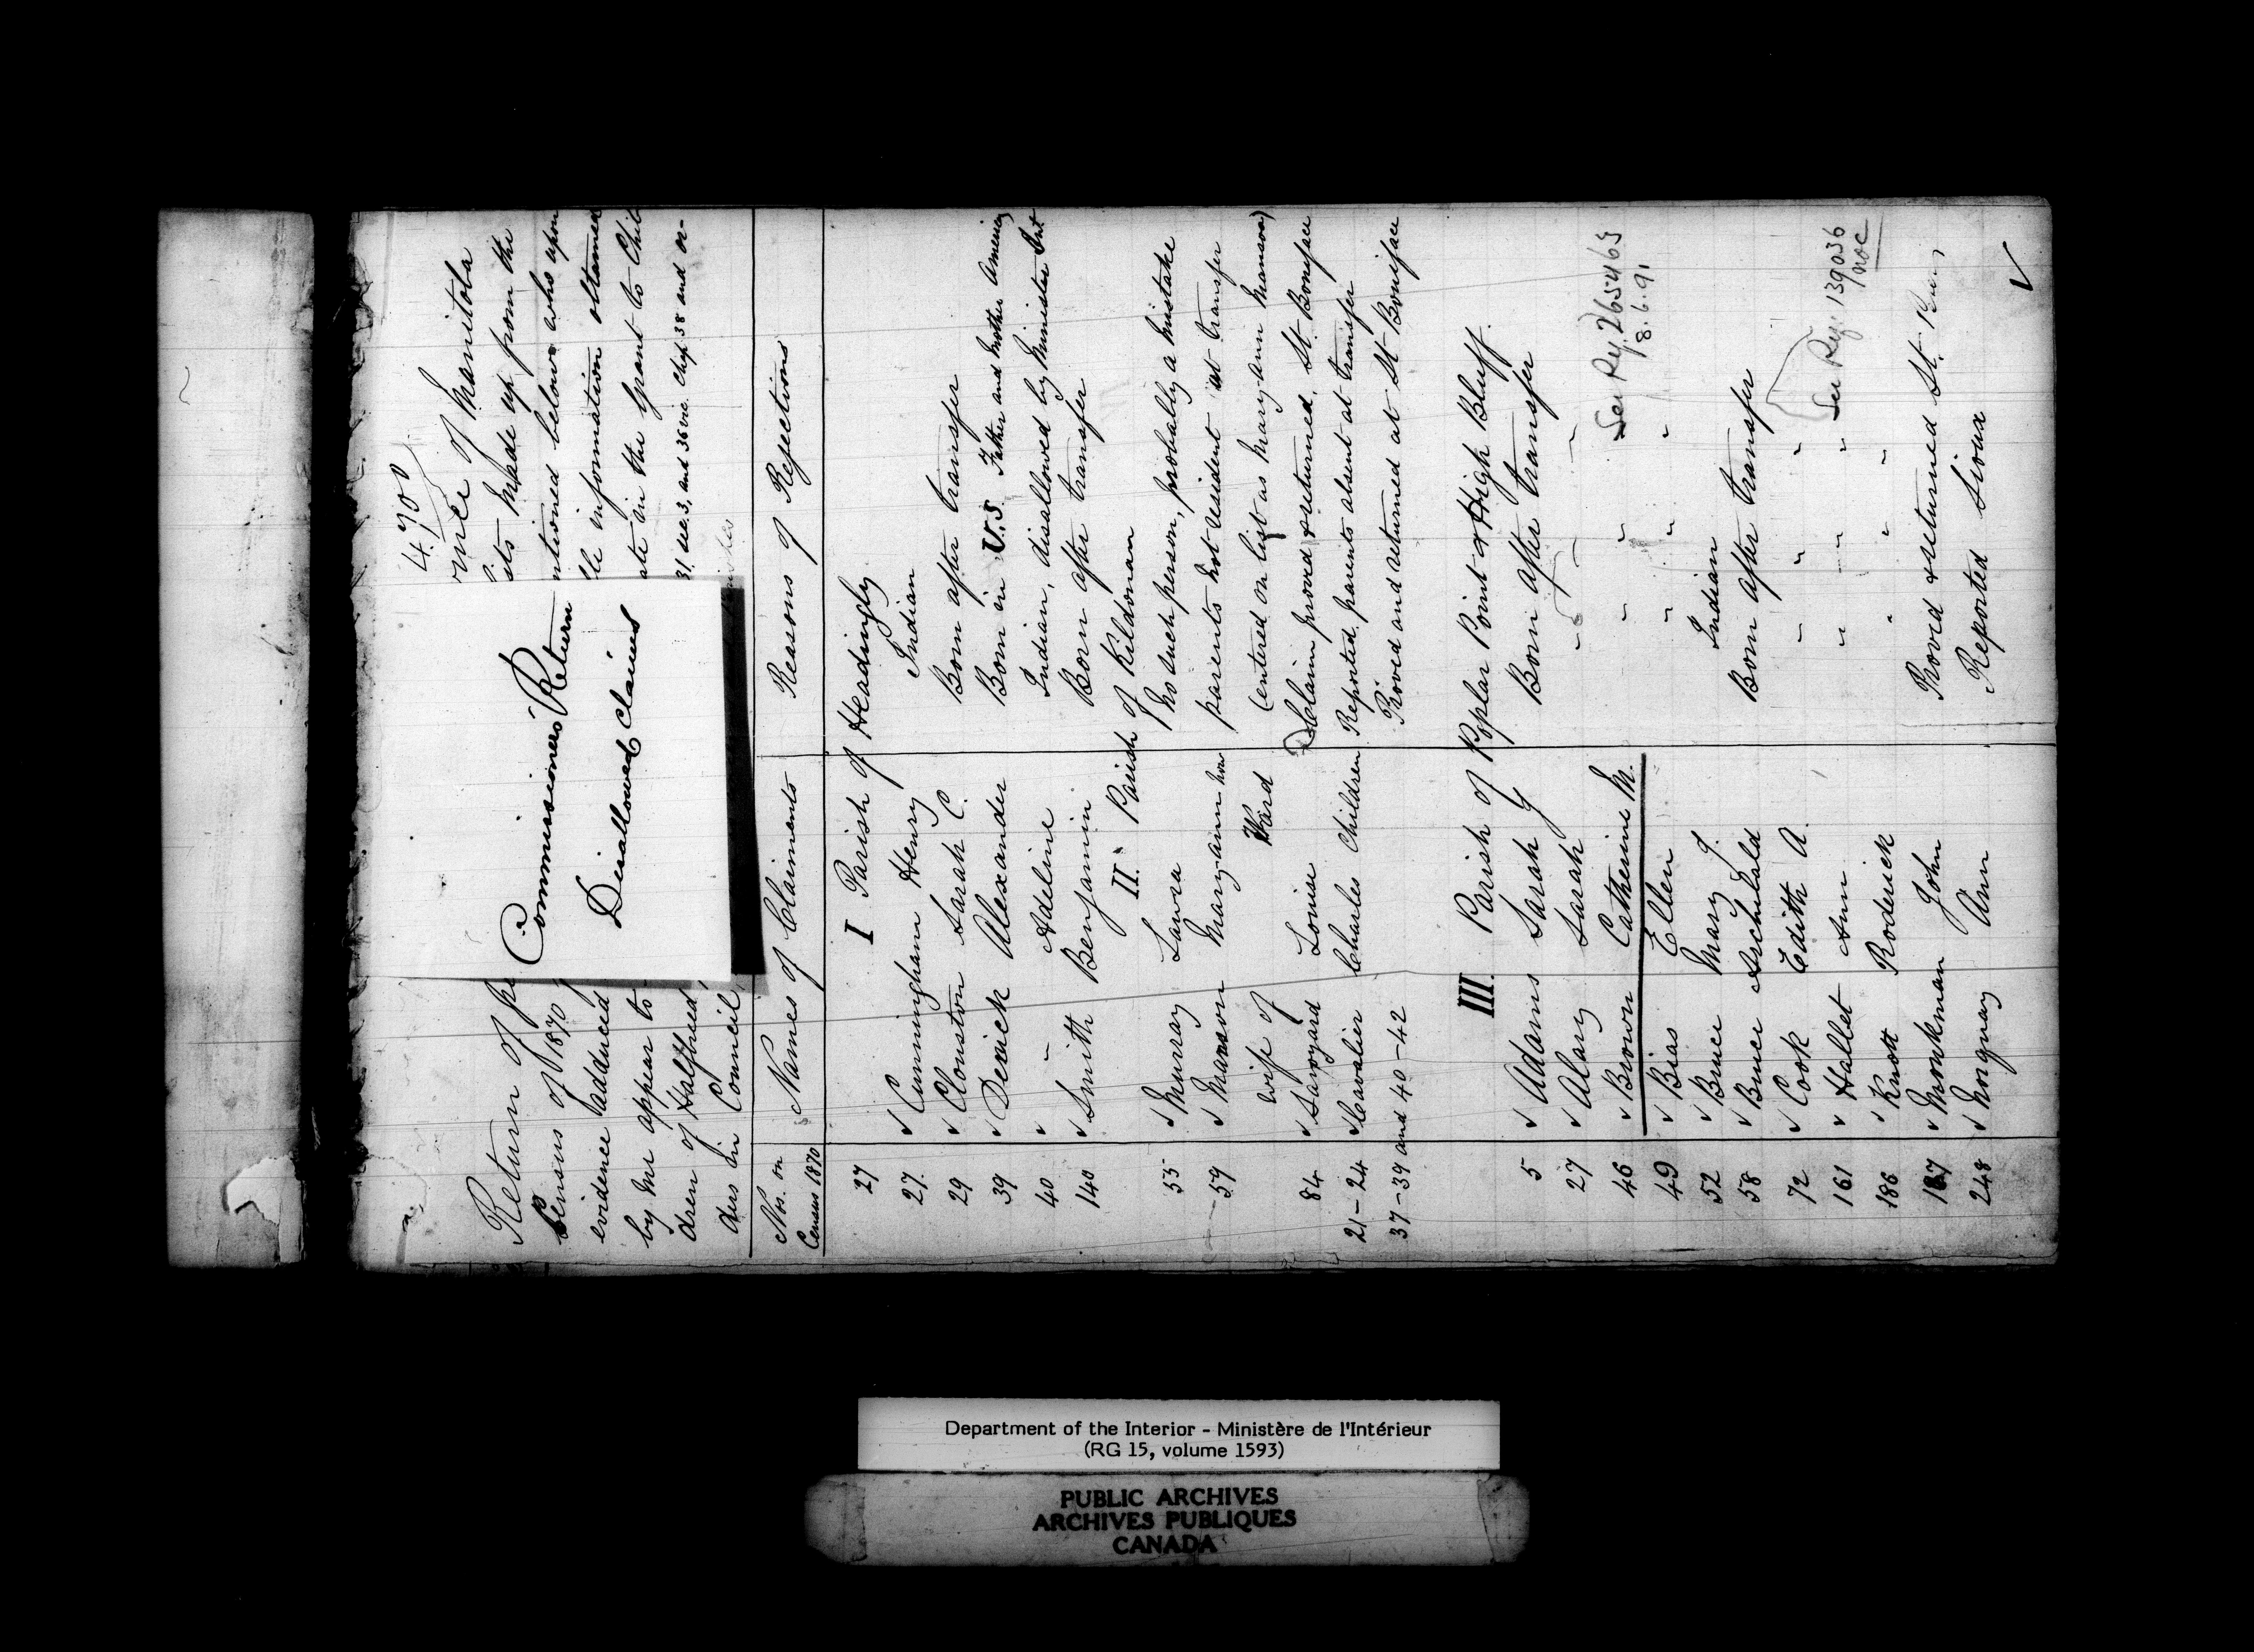 4700
Return of pe
vince of Manitoba
Census of 1870
ists made up from the
evidence adduced
ntioned below who upon
by me appear to
le information obtained
dren of Halfbreed
ate in the Grant to Chil
ders in Council
31 sec. 3, and 36 vic. Chap 38 and or-
Commissioners' Return
Disallowed Claims
Nos. on Census 1870 Names of Claimants Reasons of Rejections
I Parish of Headingly
27
27. Cunningham Henry Indian
29 Clouston Sarah C. Born after transfer
39 Derrick Alexander Born in U.S. Father and Mother American
40 " Adeline Indian, disallowed by Minister Int
140 Smith Benjamin Born after transfer
II. Parish of Kildonan
55 Murray Laura No such person, probably a mistake
59 Manson Mary-ann now parents not resident at transfer
wife of Ward (entered on list as Mary-ann Manson)
84 Savoyard Louise Claim proved & returned, St. Boniface
21-24 Cavalier Charles Children Reported, parents absent at transfer
37-39 and 40-42 Proved and returned at St Boniface
III. Parish of Poplar Point & High Bluff.
5 Adams Sarah Y Born after transfer
27 Alary Sarah " " "
46 Brown Catherine M. " " " See Ry. 265463
8.6.91
49 Bias Ellen " " "
52 Bruce Mary J. Indian
58 Bruce Archibald Born after transfer
72 Cook Edith A. " " "
161 Hallet Ann " " " See Reg. 139036
186 Knott Roderick " " "
187 Monkman John Proved & returned St.
248 Norquay Ann Reported Sioux
Department of the Interior - Ministère de l'Intérieur
(RG 15, volume 1593)
PUBLIC ARCHIVES
ARCHIVES PUBLIQUES
CANADA